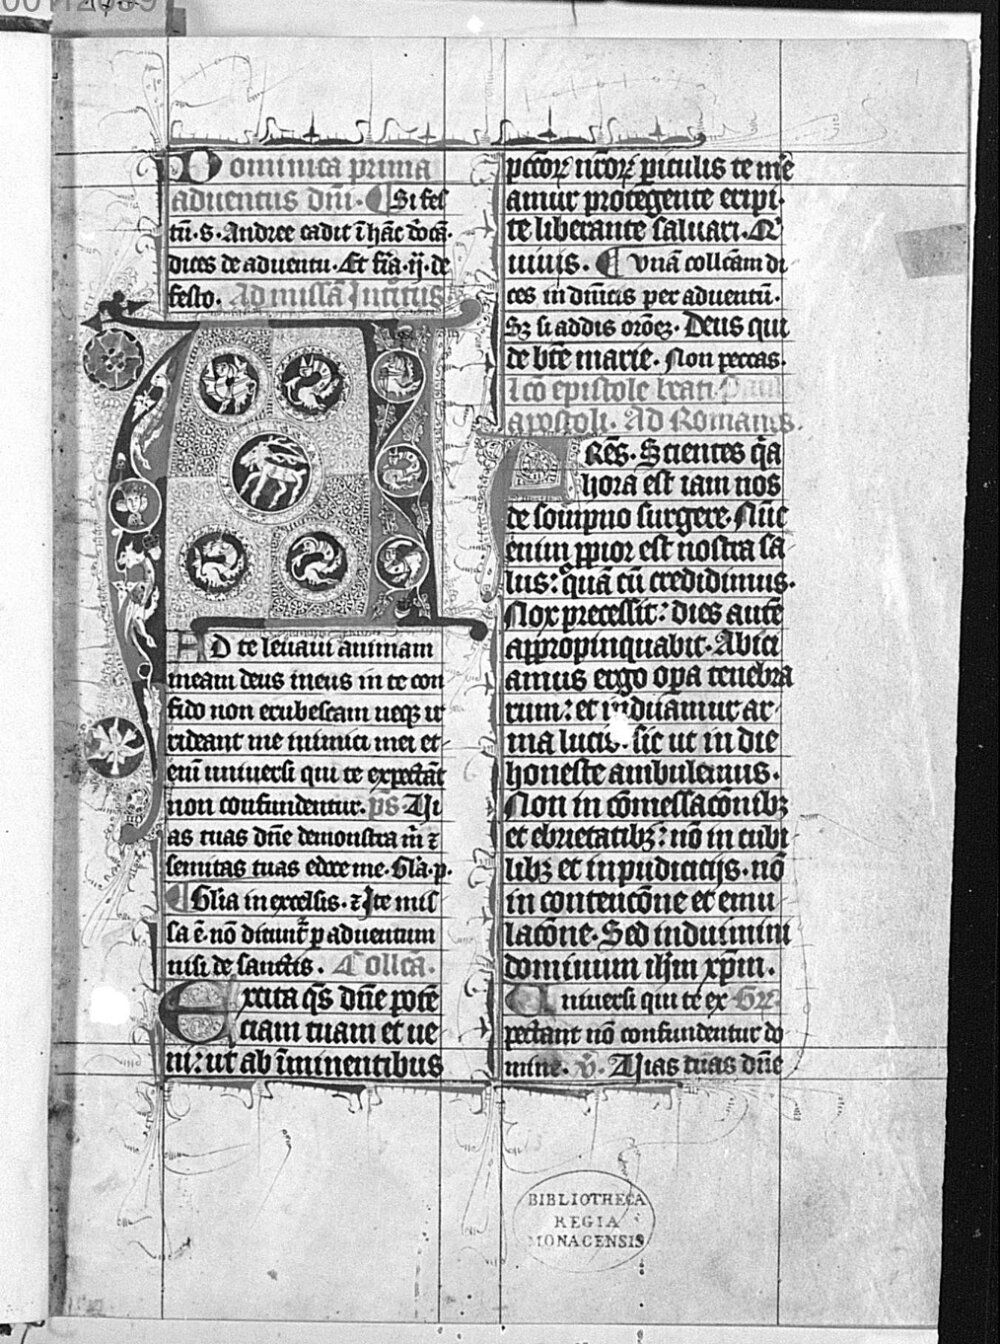 Dominica prima
aduentus dn̄i. Si fes
tū. s. Andree cadit ī hāc dōcā.
dices de aduentu. Et fīa. ij. de
festo. Ad missā Introitus
AD te leuaui animam
meam deus meus in te con
fido non erubescam neqꝫ ir
rideant me inimici mei et
enī uniuersi qui te expectāt
non confundentur. ps̄ Vi
as tuas dn̄e demonstra m̄ ꞇ
semitas tuas edoce me. Gl̄a. p.
Gl̄ia in excelsis. ꞇ Ite mis
sa ē. nō dicunt᷑ p aduentum
nisi de sanctis. Collcā.
Excita qs̄ dn̄e potē
ciam tuam et ue
ni: ut ab īminentibus
pctōꝝ nr̄oꝝ piculis te me
amur protegente eripi.
te liberante saluari. Q̇
uiuis. Vnā collcām di
ces in dn̄icis per aduentū.
Sꝫ si addis orōeꝫ. Deus qui
de btē marie. Non peccas.
Lcō epistole beati Pauli
apostoli. Ad Romanos.
FRēs. Scientes qa
hora est iam nos
de sompno surgere. Nūc
enim ppior est nostra sa
lus: quā cū credidimus.
Nox precessit: dies autē
appropinquabit. Abici
amus ergo opa tenebra
rum: et induamur ar
ma lucis. sic ut in die
honeste ambulemus.
Non in cōmessacōnibꝫ
et ebrietatibꝫ: nō in cubi
libꝫ et inpudicicijs. nō
in contencōne et emu
lacōne. Sed induimini
dominum ih̄m xp̄m.
Vniuersi qui te ex Gr̄
pectant nō confundentur do
mine. v̄. Vias tuas dn̄e
BIBLIOTHECA
REGIA
MONACENSIS